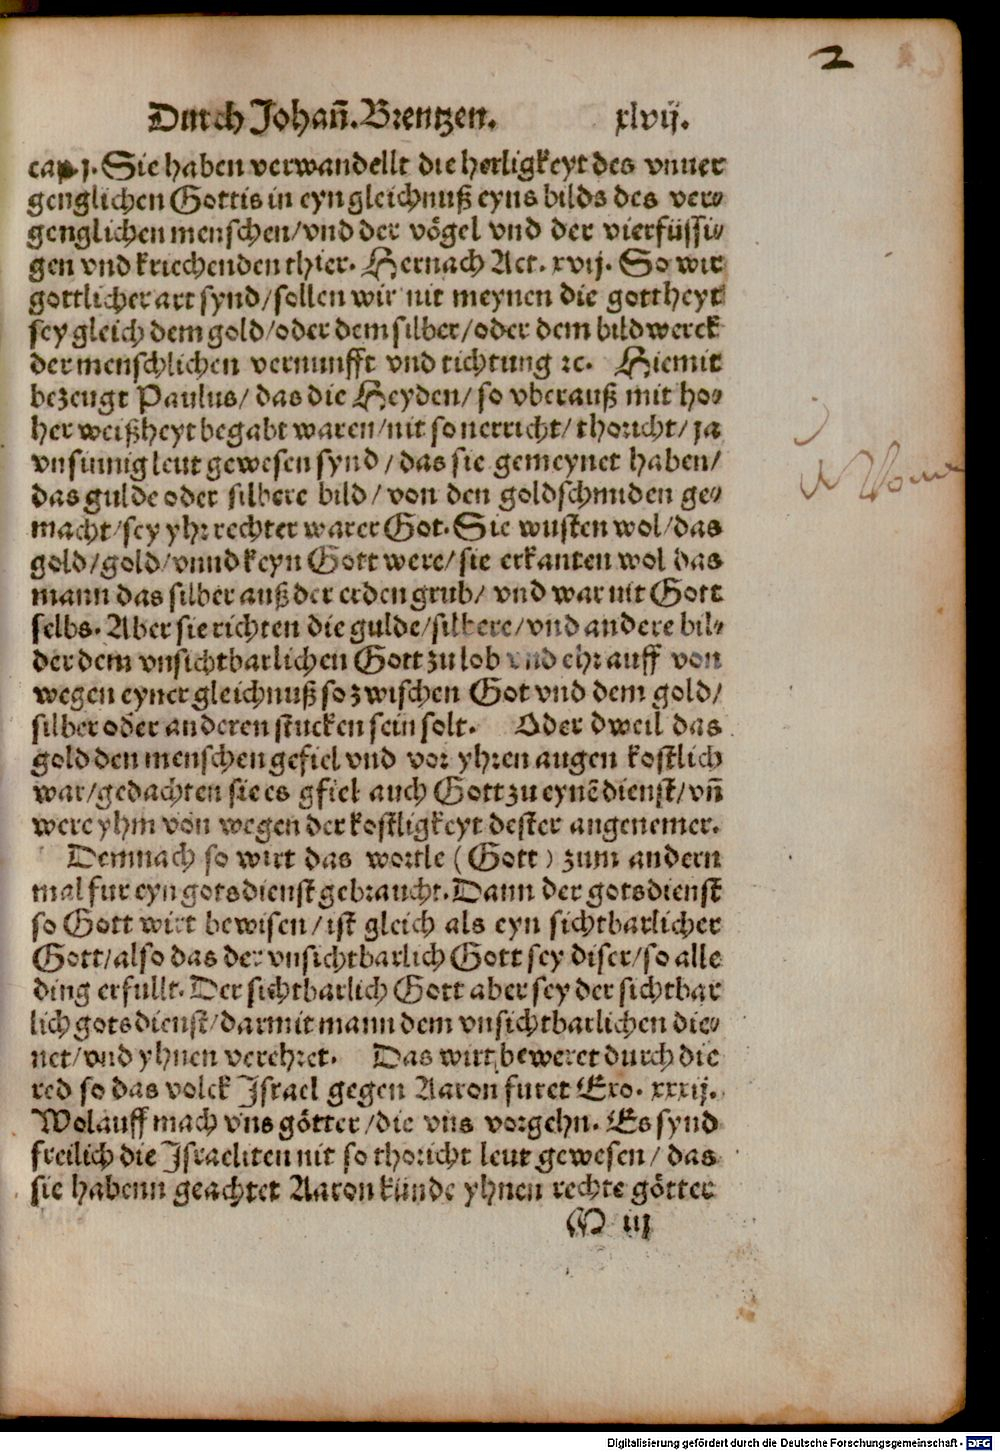 2
Durch Johañ. Brentzen. xlvij.
cap. j. Sie haben verwandellt die herligkeyt des vnuer
genglichen Gottis in eyn gleichnuß eyns bilds des ver⸗
genglichen menschen/vnd der vögel vnd der vierfüssi⸗
gen vnd kriechenden thier. Hernach Act. xvij. So wir
gottlicher art synd/sollen wir nit meynen die gottheyt
sey gleich dem gold/oder dem silber/oder dem bildwerck
der menschlichen vernunfft vnd tichtung ꝛc. Hiemit
bezeugt Paulus/ das die Heyden/ so vberauß mit ho⸗
her weißheyt begabt waren/nit so nerricht/ thoricht/ ja
vnsinnig leut gewesen synd/ das sie gemeynet haben/
das gulde oder silbere bild/ von den goldschmiden ge⸗
macht/sey yhr rechter warer Got. Sie wusten wol/das
gold/gold/vnnd keyn Gott were/ sie erkanten wol das
mann das silber auß der erden grub/ vnd war nit Gott
selbs. Aber sie richten die gulde/silbere/vnd andere bil⸗
der dem vnsichtbarlichen Gott zu lob vnd ehr auff von
wegen eyner gleichnuß so zwischen Got vnd dem gold/
silber oder anderen stucken sein solt. Oder dweil das
gold den menschen gefiel vnd vor yhren augen kostlich
war/gedachten sie es gfiel auch Gott zu eynē dienst/vñ
were yhm von wegen der kostligkeyt dester angenemer.
Demnach so wirt das wortle (Gott) zum andern
mal fur eyn gotsdienst gebraucht. Dann der gotsdienst
so Gott wirt bewisen/ist gleich als eyn sichtbarlicher
Gott/also das der vnsichtbarlich Gott sey diser/so alle
ding erfullt. Der sichtbarlich Gott aber sey der sichtbar
lich gotsdienst/darmit mann dem vnsichtbarlichen die⸗
net/vnd yhnen verehret. Das wirt beweret durch die
red so das volck Israel gegen Aaron furet Exo. xxxij.
Wolauff mach vns götter/die vns vorgehn. Es synd
freilich die Israeliten nit so thoricht leut gewesen/ das
sie habenn geachtet Aaron künde yhnen rechte götter
M iij
Digitalisierung gefördert durch die Deutsche Forschungsgemeinschaft - DFG